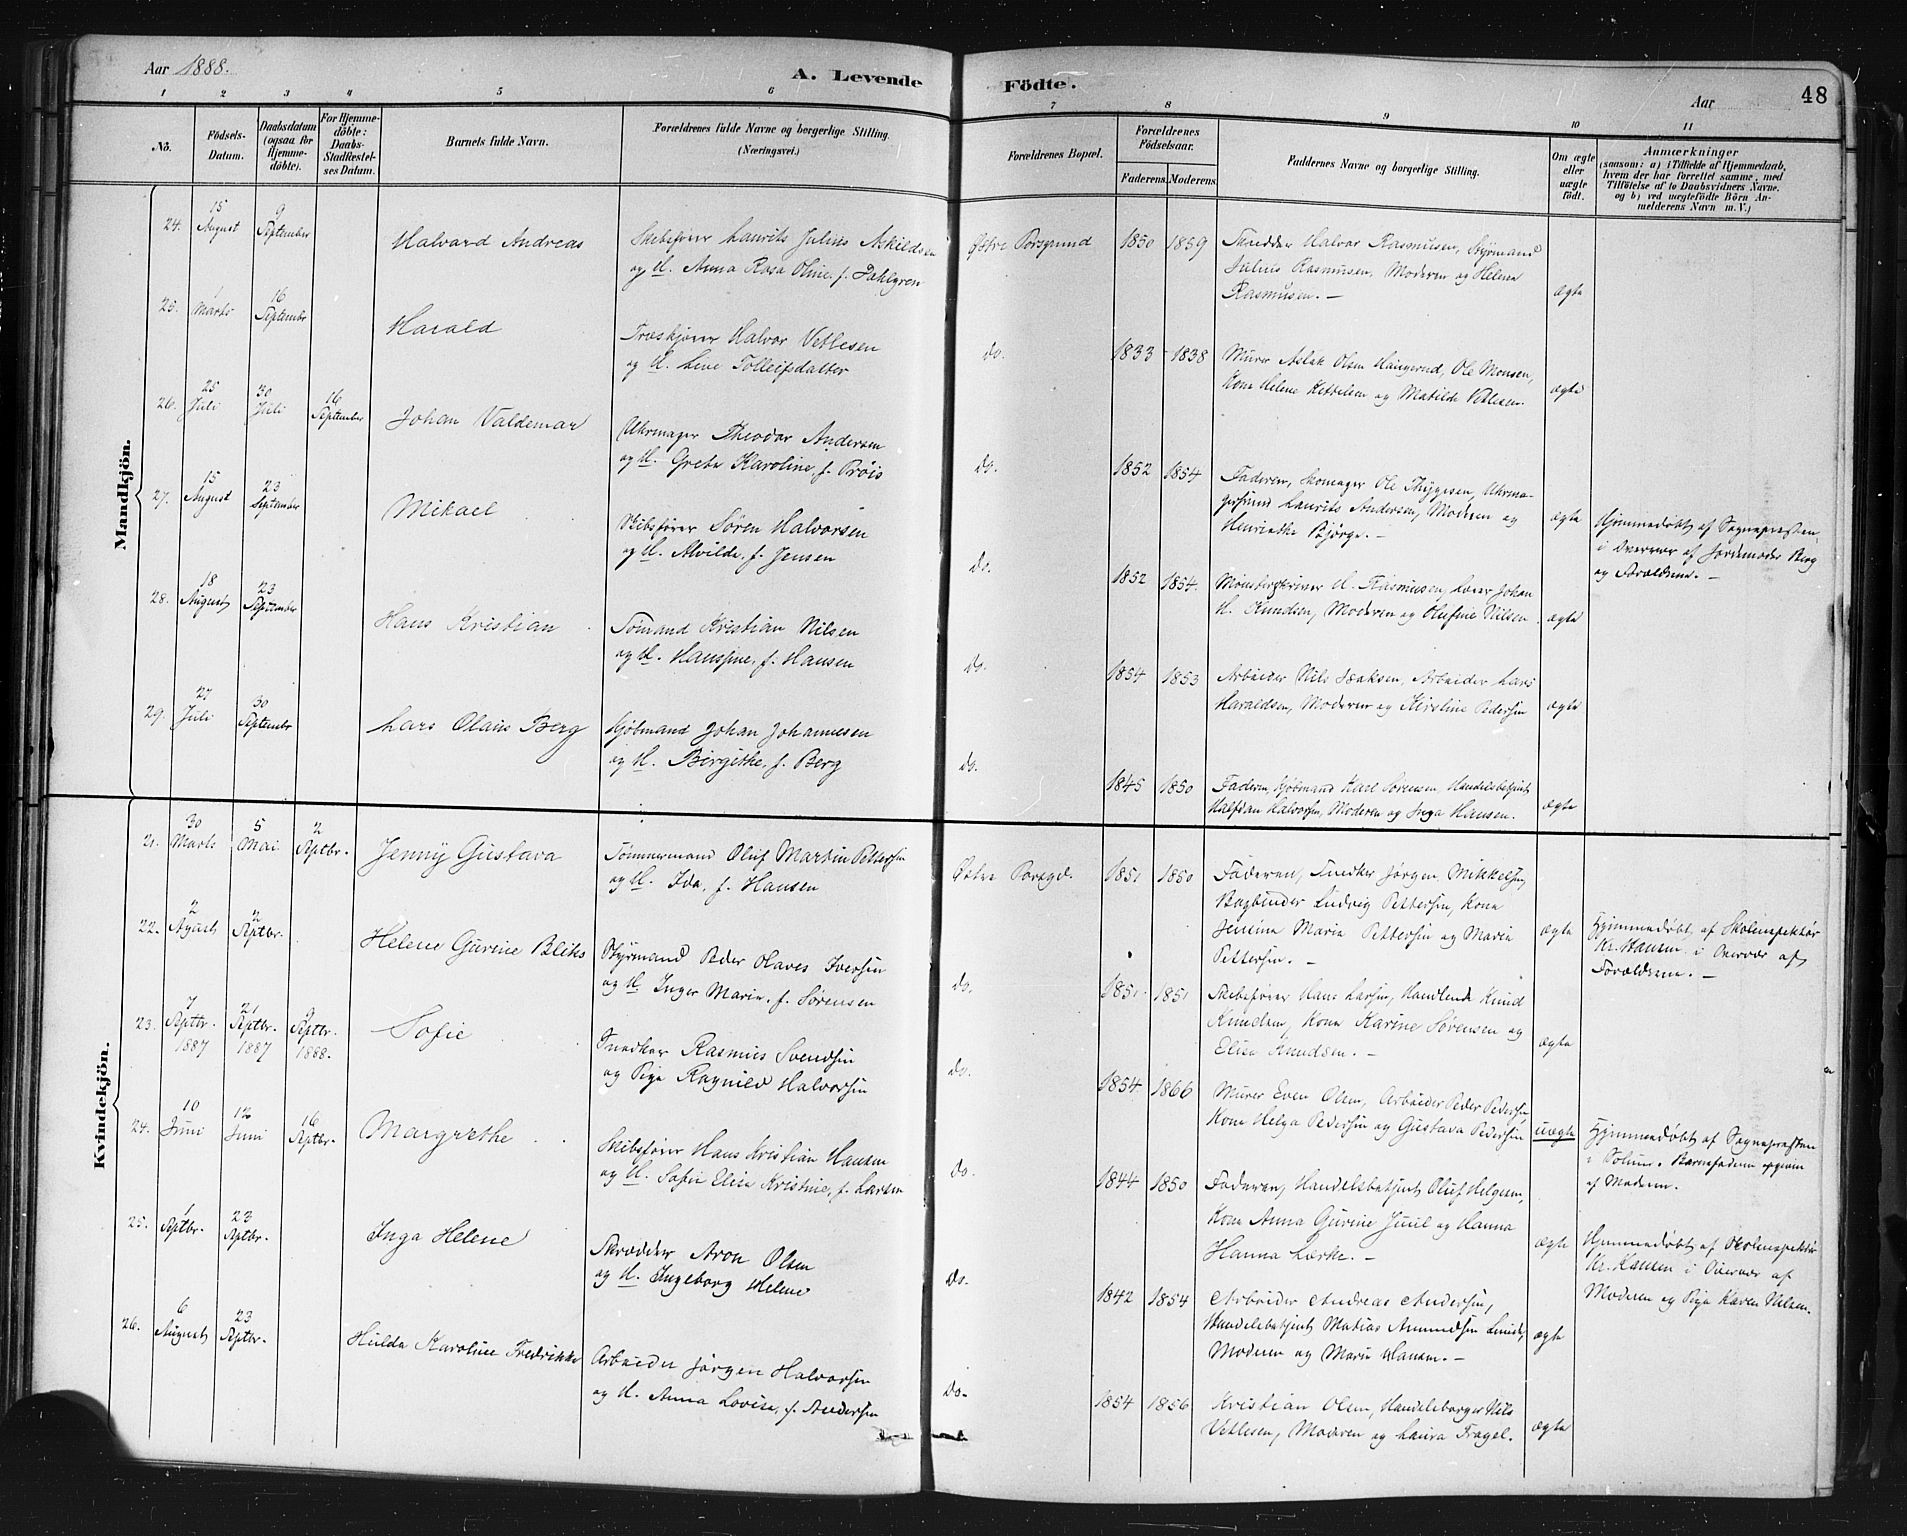 Aar 1888.
A. Levende
Födte.
Aar
48
1 2 3 4 5 6 7 8 9 10 11
No.
Födsels-
Datum.
Daabsdatum
(ogsaa for
Hjemme-
döbte).
For Hjemme-
döbte:
Daabs-
Stadfæstel-
ses Datum.
Barnets fulde Navn.
Forældrenes fulde Navne og borgerlige Stilling.
(Næringsvei.)
Forældrenes Bopæl.
Forældrenes
Födselsaar.
Faderens. Moderens.
Faddernes Navne og borgerlige Stilling.
Om ægte
eller
uægte
födt.
Anmærkninger
(saasom: a) i Tilfælde af Hjemmedaab,
hvem der har forrettet samme, med
Tilföielse af to Daabsvidners Navne.
og b) ved uægtefödte Börn An-
melderens Navn m. V.)
Mandkjön.
24. 15 August 9 September
Halvard Andreas
Skibsfører Laurits Julius Askildsen
og H. Anna Rosa Oline, f. Dahlgren
Østre Porsgrund
1850 1859
Snedker Halvor Rasmussen, Styrmand
Julius Rasmussen, Moderen og Helene
Rasmussen. —
ægte
25. 1 Marts 16 September
Harald
Træskjærer Halvor Vetlesen
og H. Lene Tolleifsdatter
do.
1833 - 1838
Murer Aslak Olsen Haugerud, Ole Monsen,
Kone Helene Kettelsen og Matilde Vetlesen.
ægte
26. 25 Juli 30 Juli 16 September
Johan Valdemar
Uhrmager Theodor Andersen
og H. Grethe Karoline, f. Prøis
do.
1852 1854
Faderen, Skomager Ole Thygesen, Uhrma-
gersvend Laurits Andersen, Moderen og
Henriette Bjørge. —
ægte
Hjemmedøbt af Sognepresten
i Overvær af Jordemoder Berg
og Forældrene. —
27. 15 August 23 September
Mikael
Skibsfører Søren Halvorsen
og H. Alvilde, f. Jensen
do.
1852 1854.
Mønsterskriver H. Rasmussen, Lærer Johan
H. Knudsen, Moderen og Olufine Nilsen.
ægte
28. 18 August 23 September
Hans Kristian
Sømand Kristian Nilsen
og H. Hansine, f. Hansen
do.
1854 1853
Arbeider Nils Isaksen, Arbeider Lars
Haraldsen, Moderen og Kirstine Pedersen
ægte
29. 27 Juli 30 September
Lars Olaus Berg
Kjøbmand Johan Johannesen
og H. Birgithe, f. Berg
do.
1845 1850
Faderen, Kjøbmand Karl Sørensen, Handelsbetjent
Halfdan Halvorsen, Moderen og Inga Hansen.
ægte
Kvindekjön.
21. 30 Marts 5 Mai 2 Septbr.
Jenny Gustava
Tømmermand Oluf Martin Pettersen
og H. Ida, f. Hansen
Østre Porsgd.
1851 1850
Faderen, Snedker Jørgen Mikkelsen,
Bogbinder Ludvig Pettersen, Kone
Jensine Marie Pettersen og Marie
Pettersen. —
ægte
Hjemmedøbt af Skoleinspektør
Kr. Hansen i Overvær af
Forældrene. —
22. 2 August 2 Septbr.
Helene Gurine Bliks
Styrmand Peder Olaves Iversen
og H. Inger Marie, f. Sørensen
do.
1851. 1851
Skibsfører Hans Larsen, Handlende Knud
Knudsen, Kone Karine Sørensen og
Elise Knudsen. —
ægte
23. 7 Septbr. 1887 21 Septbr. 1887 9 Septbr. 1888.
Sofie
Snedker Rasmus Svendsen
og Pige Ragnild Halvorsen
do.
1854. 1866
Murer Even Olsen, Arbeider Peder Pedersen,
Kone Helga Pedersen og Gustava Pedersen
uægte
Hjemmedøbt af Sognepresten
i Solum. Barnefaderen opgiven
af Moderen.
24. 10 Juni 12 Juni 16 Septbr.
Margrethe
Skibsfører Hans Kristian Hansen
og H. Sofie Elise Kristine, f. Larsen
do.
1844 1850
Faderen, Handelsbetjent Oluf Helgesen,
Kone Anna Gurine Juul og Hanna
Hanna Lærke. —
ægte
Hjemmedøbt af Skoleinspektør
Kr. Hansen i Overvær af
Moderen og Pige Karen Nilsen.
25. 1 Septbr. 23 Septbr.
Inga Helene
Skrædder Aron Olsen
og H. Ingeborg Helene
do.
1842 1854
Arbeider Andreas Andersen,
Handelsbetjent Matias Amundsen Linde,
Moderen og Marie Hansen. —
ægte
26. 6 August 23 Septbr.
Hulda Karoline Fredrikke
Arbeider Jørgen Halvorsen
og H. Anna Lovise, f. Andersen
do.
1854 1856
Kristian Olsen, Handelsborger Nils
Vetlesen, Moderen og Laura Fragel.
ægte